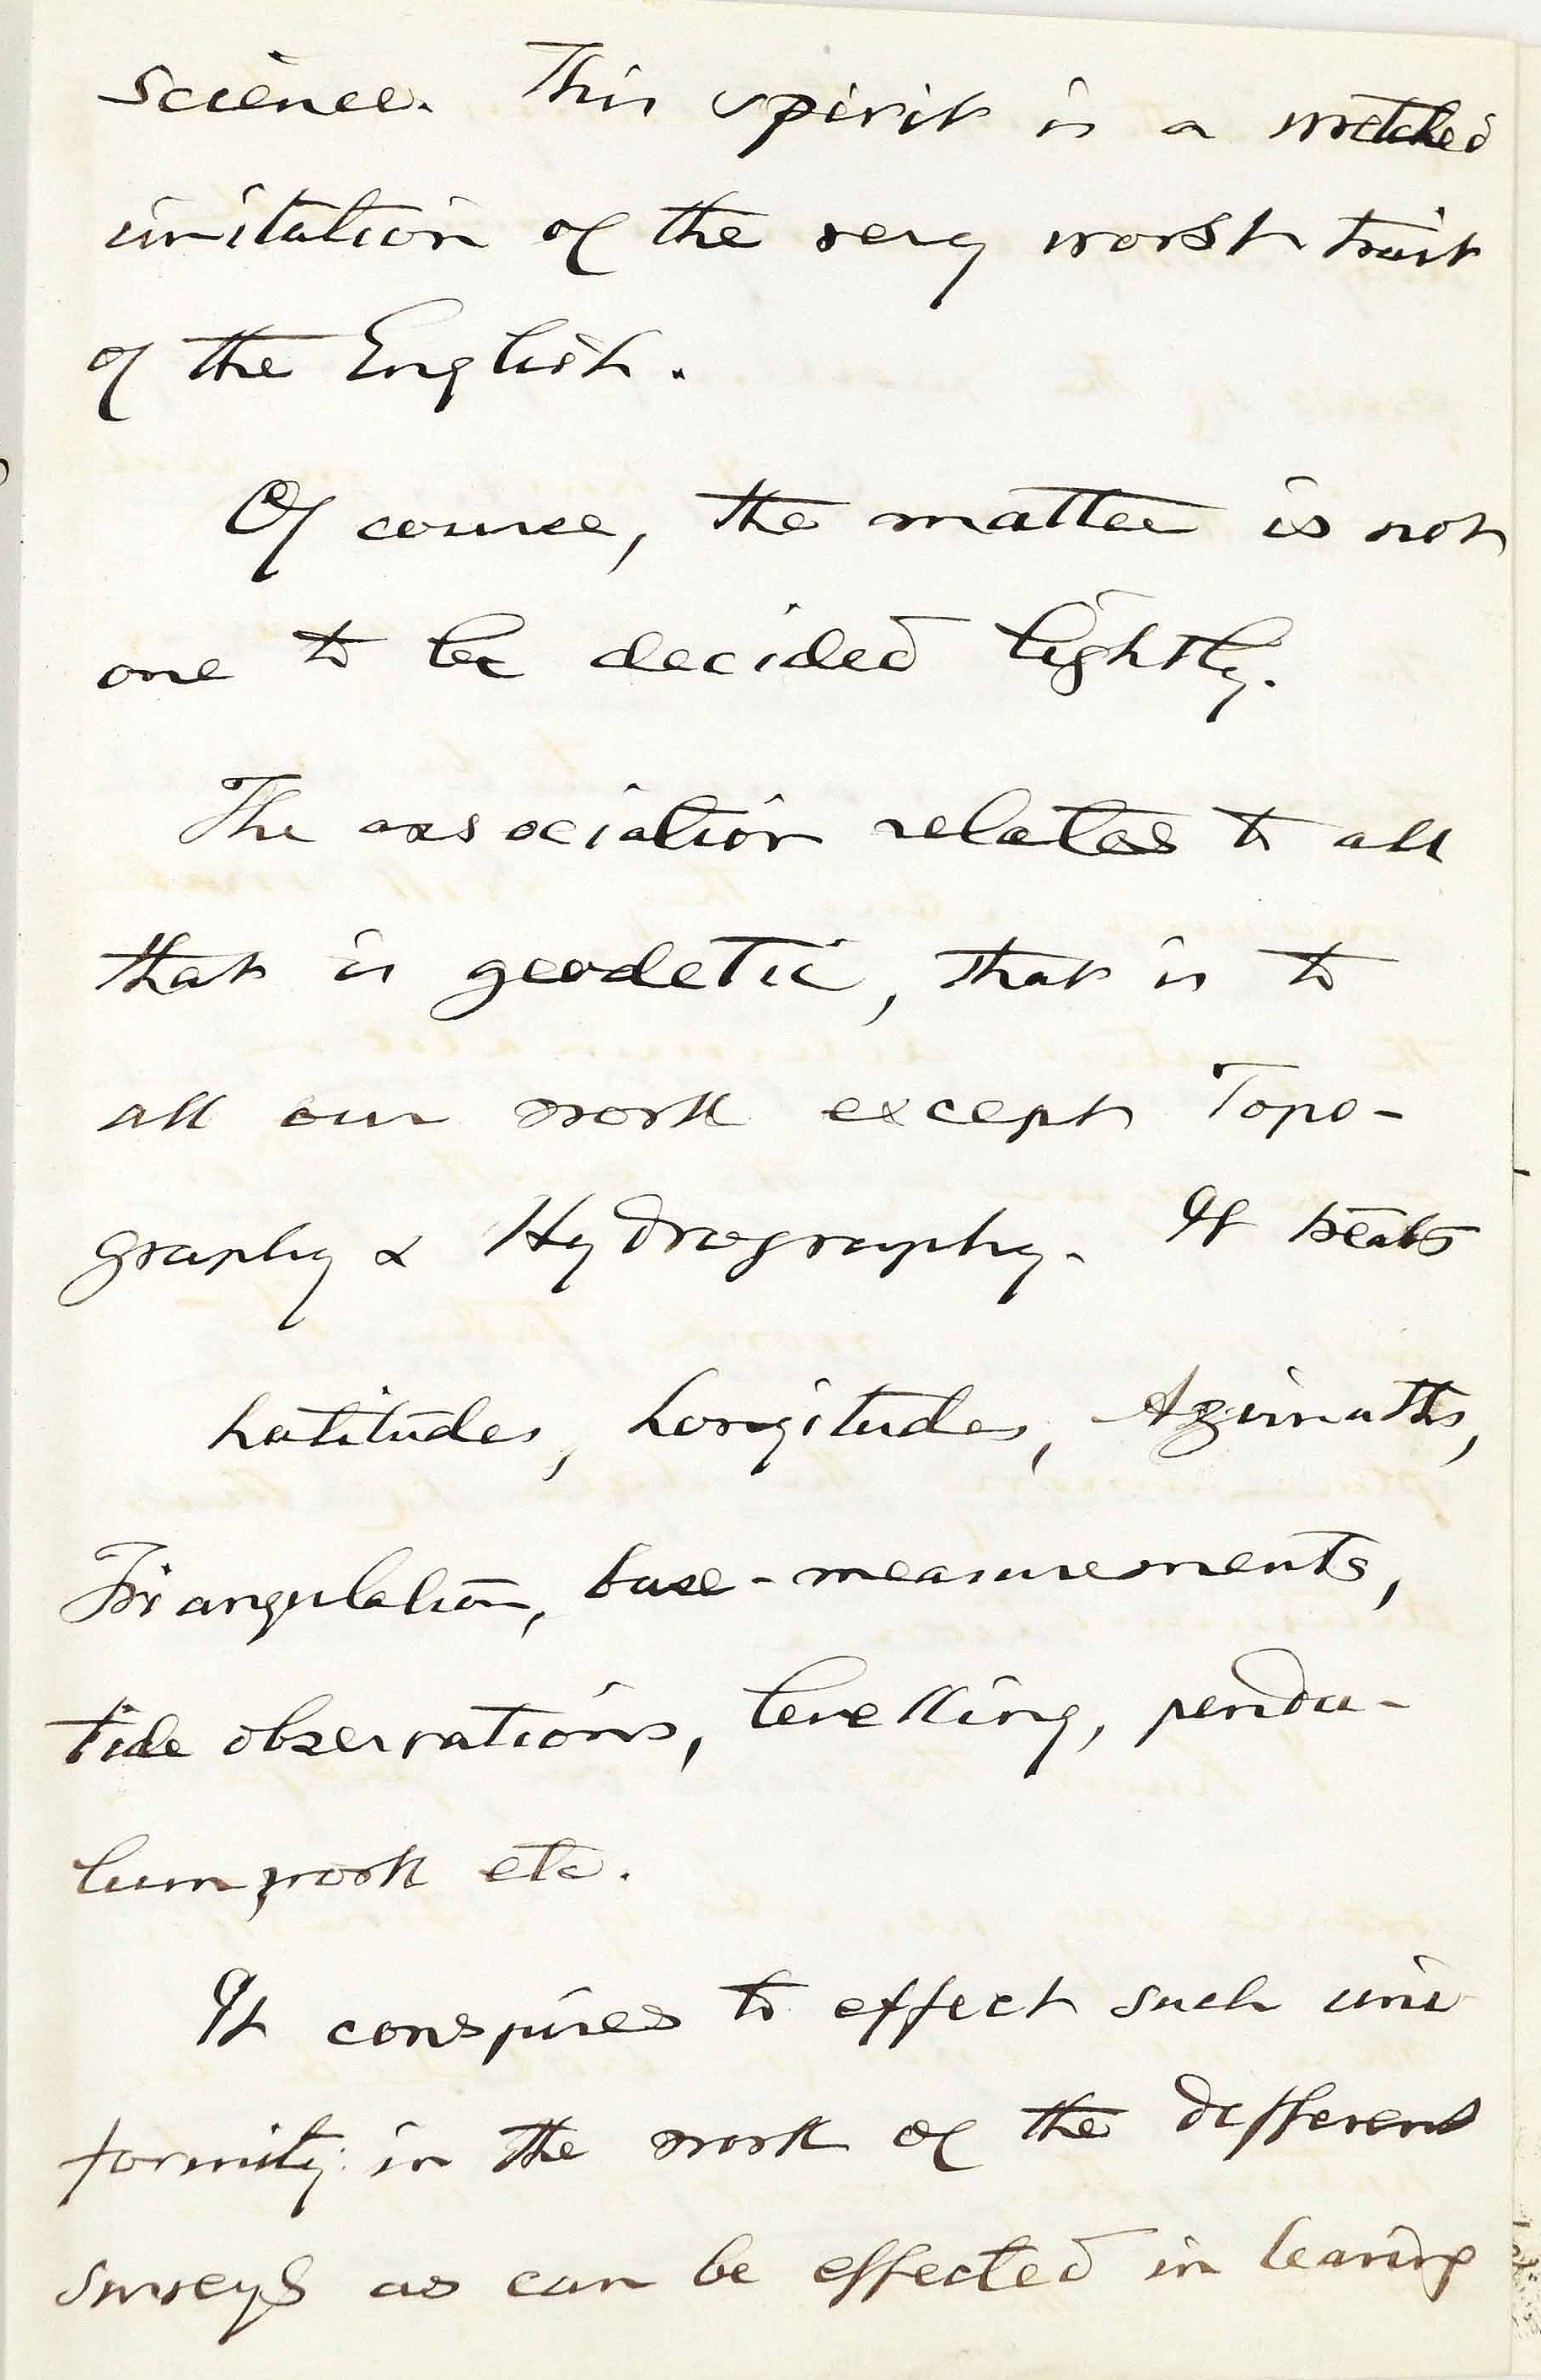 science. This spirit is a wretched
imitation of the very worst trait
of the English.
Of course, the matter is not
one to be decided lightly.
The association relates to all
that is geodetic, that is to
all our work except Topo-
graphy & Hydrography. It treats
Latitudes, Longitudes, Azimuths,
Triangulation, base-measurements,
tide observations, levelling, pendu-
lum work etc.
It conspires to effect such uni
formity in the work of the different
surveys as can be effected in leaving